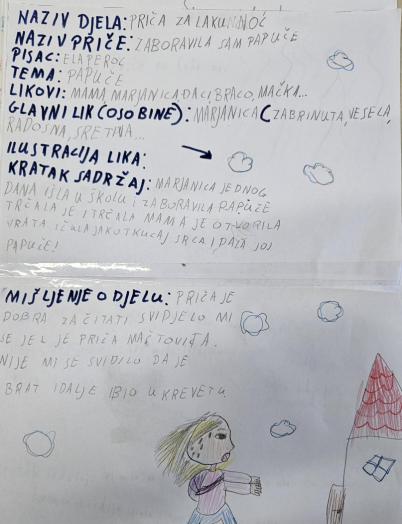 NAZIV DJELA: PRIČA ZA LAKU NOĆ
NAZIV PRIČE: ZABORAVILA SAM PAPUČE
PISAC: ELA PEROCI
TEMA: PAPUČE
LIKOVI: MAMA, MARJANICA ĐACI, BRACO, MAČKA...
GLAVNI LIK (OSOBINE): MARJANICA (ZABRINUTA, VESELA,
RADOSNA, SRETNA...
ILUSTRACIJA LIKA:
KRATAK SADRŽAJ: MARJANICA JEDNOG
DANA IŠLA U ŠKOLU I ZABORAVILA PAPUČE
TRČALA JE I TRČALA MAMA JE OTVORILA
VRATA JAKO KUCAJ SRCA I DALA JOJ
PAPUČE!
MIŠLJENJE O DJELU: PRIČA JE
DOBRA ZA ČITATI SVIDJELO MI
SE JEL JE PRIČA MAŠTOVITA.
NIJE MI SE SVIDILO DA JE
BRAT I DALJE BIO U KREVETU.